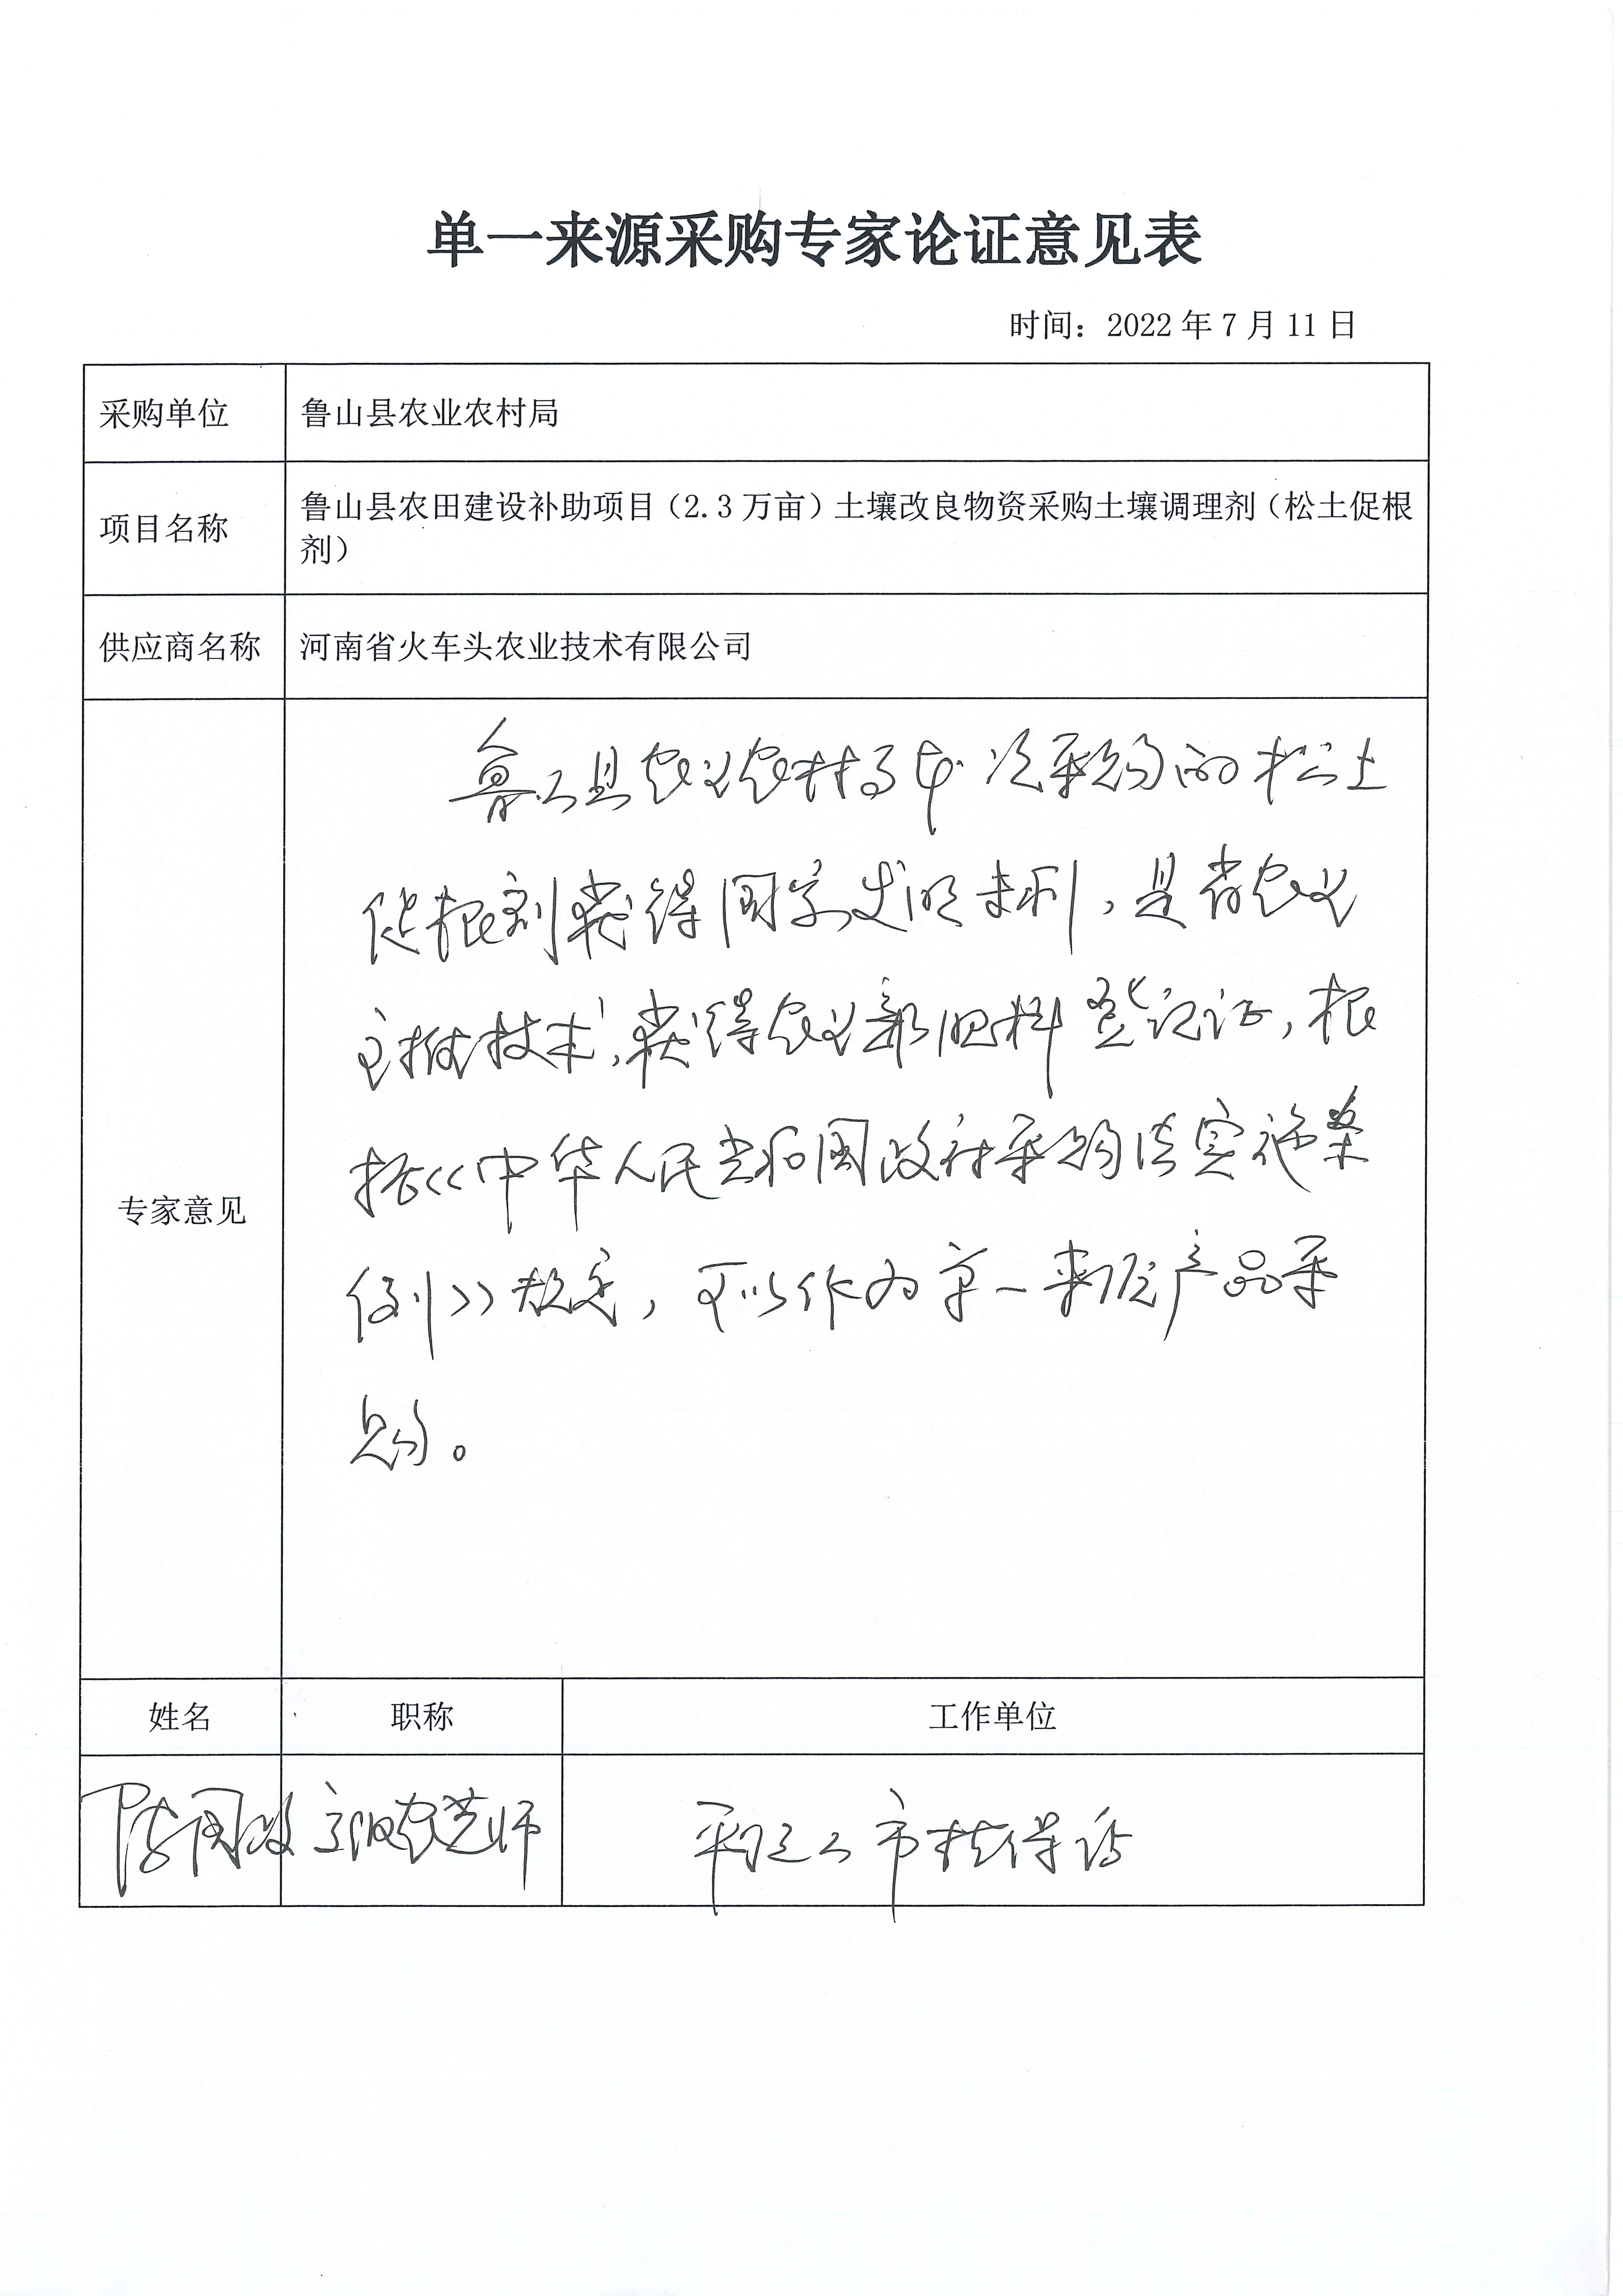 单一来源采购专家论证意见表
时间：2022年7月11日
采购单位 鲁山县农业农村局
项目名称 鲁山县农田建设补助项目（2.3万亩）土壤改良物资采购土壤调理剂（松土促根
剂）
供应商名称 河南省火车头农业技术有限公司
专家意见
鲁山县农业农村局本次采购的松土
促根剂获得国家发明专利，是省农业
主推技术，获得农业部肥料登记证，根
据《中华人民共和国政府采购法实施条
例》规定，可以作为单一来源产品采
购。
姓名 职称 工作单位
陈国政 高级农艺师 平顶山市植保站